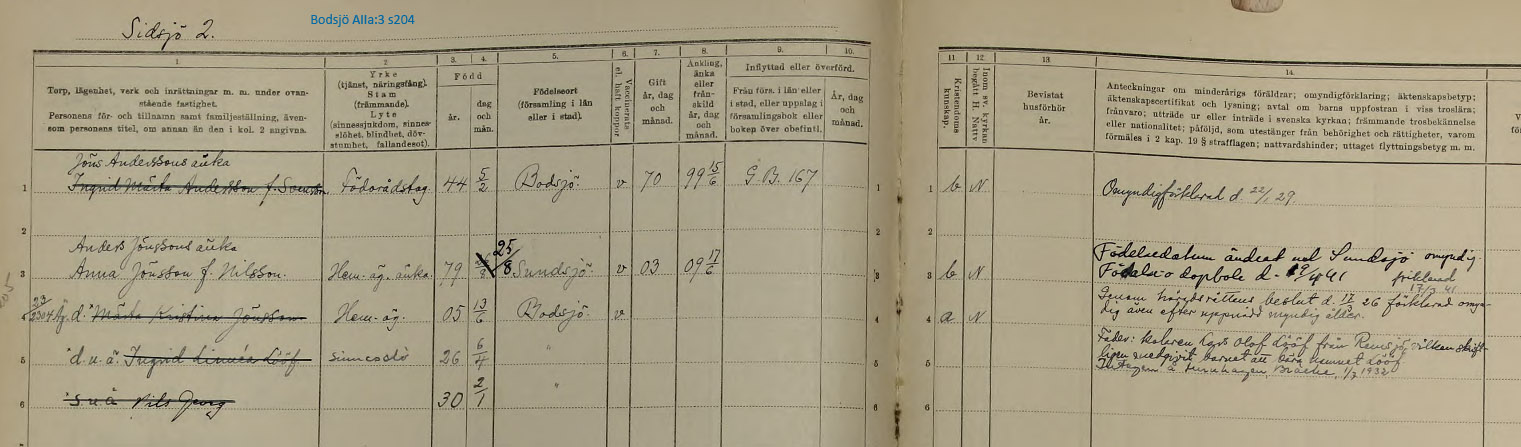 Bodsjö AIIa:3 s204
Sidsjö 2.
1
2
3.
4.
5.
6.
7.
8.
9.
10.
Torp, lägenhet, verk och inrättningar m. m. under ovan-
stående fastighet.
Personens för- och tillnamn samt familjeställning, även-
som personens titel, om annan än den i kol. 2 angivna.
Yrke
(tjänst, näringsfång).
Stam
(främmande).
Lyte
(sinnessjukdom, sinnes-
slöhet, blindhet, döv-
stumhet, fallandesot).
Född
år.
dag
och
mån.
Födelseort
(församling i län
eller i stad).
Vaccinerats
el. haft koppor.
Gift
år, dag
och
månad.
Änkling,
änka
eller
från-
skild
år, dag
och
månad.
Inflyttad eller överförd.
Från förs. i län eller
i stad, eller uppslag i
församlingsbok eller
bokep över obefintl.
År, dag
och
månad.
11
12
13.
14.
Kristendoms
kunskap.
Inom sv. kyrkan
begått H. Nattv
Bevistat
husförhör
år.
Anteckningar om minderårigs föräldrar; omyndigförklaring; äktenskapsbetyp;
äktenskapscertifikat och lysning; avtal om barns uppfostran i viss troslära;
frånvaro; utträde ur eller inträde i svenska kyrkan; främmande trosbekännelse
eller nationalitet; påföljd, som utestänger från behörighet och rättigheter, varom
förmäles i 2 kap. 19 § strafflagen; nattvardshinder; uttaget flyttningsbetyg m. m.
Jöns Anderssons änka
1 Ingrid Märta Andersson f. Svensson Födorådstag. 44 5/2 Bodsjö v 70 99 15/6 G.B. 167 1
1 b N Omyndigförklarad d. 22/1 29.
2
2
2
Anders Jönssons änka
3 Anna Jönsson f. Nilsson. Hem. äg. änka 79 25/8 Sundsjö v 03 09 17/6 3
3 b N Födelsedatum ändrat enl Sundsjö omyndig-
Födelse o dopbok d. 19/4 41 förklarad
17/2 41
205
23/2304 Äg. d. Märta Kristina Jönsson Hem. äg. 05 13/6 Bodsjö v 4
4 a N Genom häradsrättens beslut d. 17/2 26 förklarad omyn-
dig även efter uppnådd myndig ålder.
5 d. u. ä. Ingrid Linnéa Lööf. sinnesslö 26 6/4 " 5
5 Fader: kolaren Lars Olof Lööf från Remsjö, vilken skrift-
ligen medgivit barnet att bära namnet Lööf
Intagen å Furuhagen, Bräcke, 1/7 1932
6 S. u. ä Nils Georg 30 2/1 " 6
6